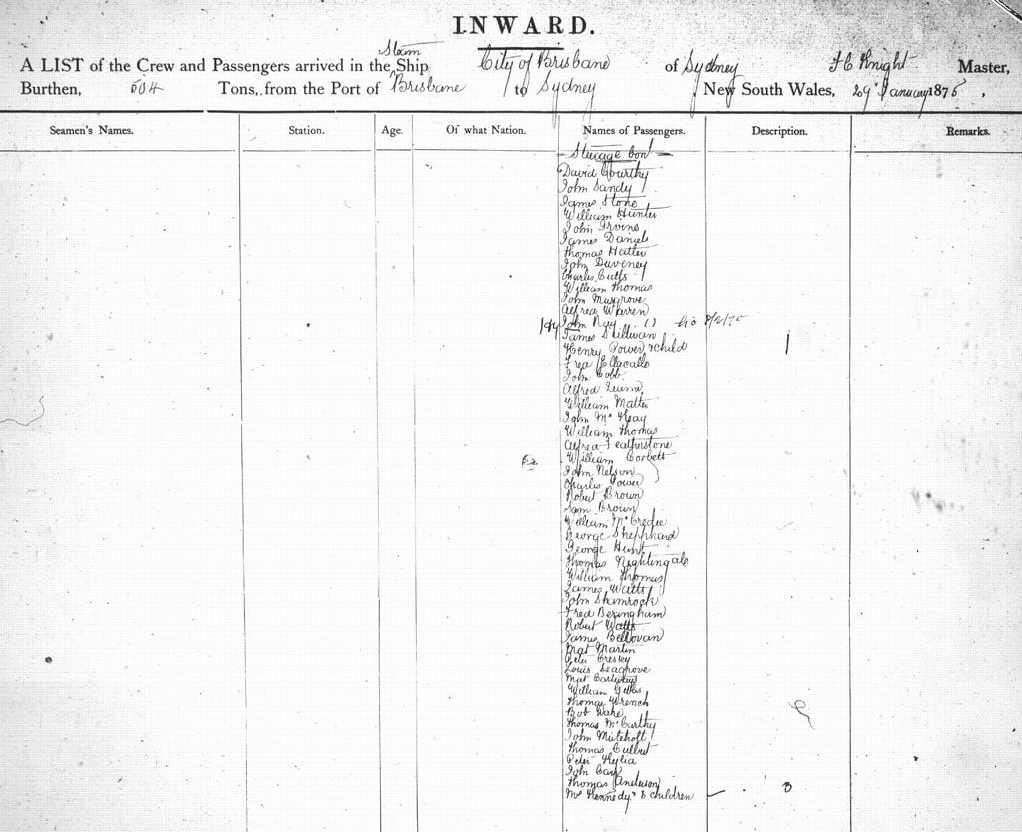 INWARD.
Steam
A LIST of the Crew and Passengers arrived in the Ship City of Brisbane of Sydney Knight Master,
Burthen, 504 Tons, from the Port of Brisbane to Sydney New South Wales, 29 January 1875,
Seamen's Names. Station. Age. Of what Nation. Names of Passengers. Description. Remarks.
Steerage
David
John Sandy
James Stone
William Hunter
John Irvine
James Daniels
Thomas Hatter
John Daveney
Charles Cutts
William Thomas
John Musgrove
Alfred Warren
John Ray
James Sullivan
Henry Power & child 1
Fred
John Cobb
Alfred
William Matter
John McKay
William Thomas
Alfred Featherstone
William Corbett
John Nelson
Charles Power
Robert Brown
Sam Brown
William McCredie
George Sheppard
George Hunt
Thomas Neghtingale
William Thomas
James Watts
John Shamrock
Fred Beringham
Robert Watts
James
Mat Martin
Peter Cresley
Louis Seagrove
Mat
William
Thomas Wrench
Bob Wake
Thomas McCarthy
John
Thomas Culbert
Peter
John Carr
Thomas Anderson
Mrs Kennedy & children 3